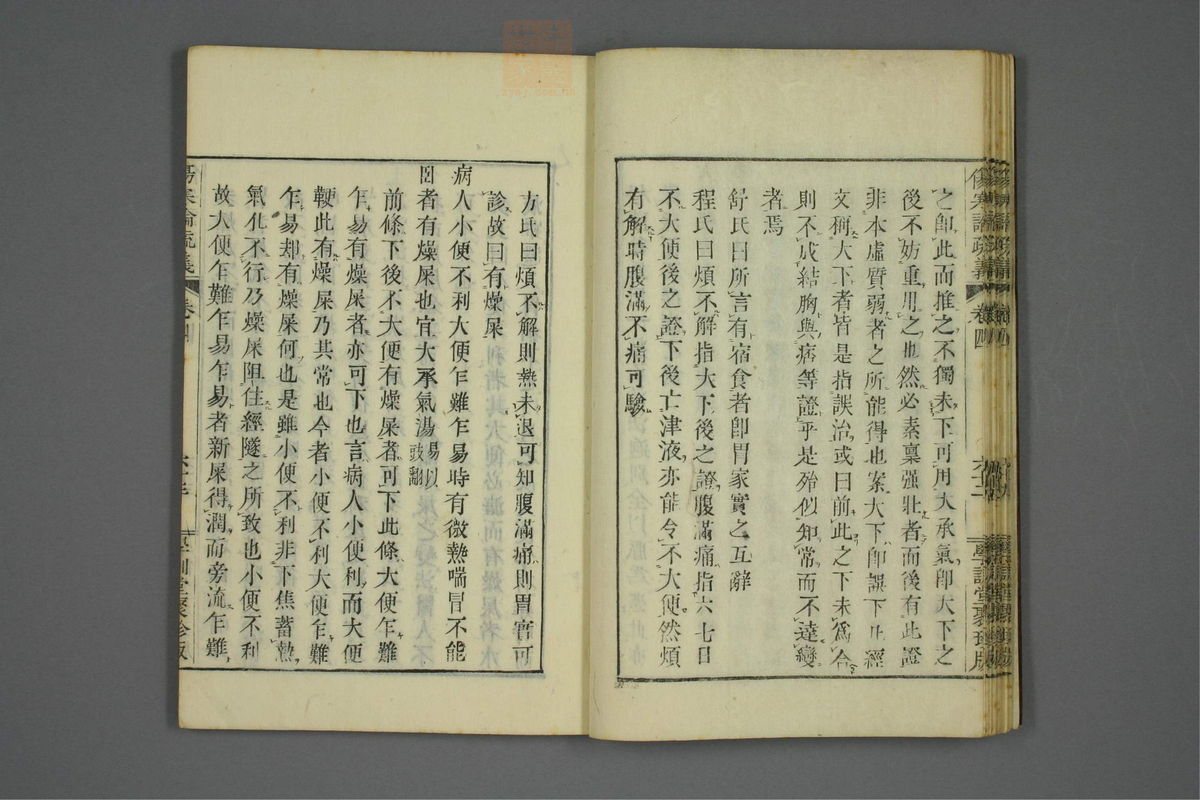 之卽此而推之不獨未下可用大承氣卽大下之
後不妨重用之也然必素稟强壯者而後有此證
非本虛質弱者之所能得也案大下卽誤下正經
文稱大下者皆是指誤治或曰前此之下未爲合
則不成結胸與痞等證乎是殆似知常而不達變
者焉
舒氏曰所言有宿食者卽胃家實之互辭
程氏曰煩不解指大下後之證腹滿痛指六七日
不大便後之證下後亡津液亦能令不大便然煩
有解時腹滿不痛可驗
方氏曰煩不解則熱未退可知腹滿痛則胃實可
診故曰有燥屎
病人小便不利大便乍難乍易時有微熱喘冒不能
臥者有燥屎也宜大承氣湯
前條下後不大便有燥屎者可下此條大便乍難
乍易有燥屎者亦可下也言病人小便利而大便
鞕此有燥屎乃其常也今者小便不利大便乍難
乍易却有燥屎何也是雖小便不利非下焦蓄熱
氣化不行乃燥屎阻住經隧之所致也小便不利
故大便乍難乍易乍易者新屎得潤而旁流乍難
傷寒論疏義
卷四
學訓堂聚珍版